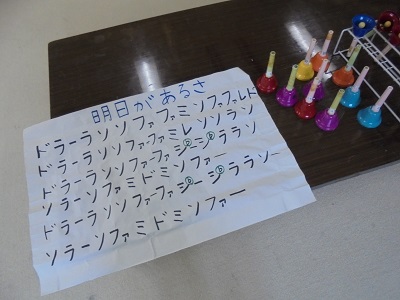 明日があるさ
ドラーラソソファファミソファファレド
ドラーラソソファファミレソソラソ
ドラーラソソファファジージララソ
ソラーソファミドミソファー
ドラーラソソファファジージララソー
ソラーソファミドミソファー